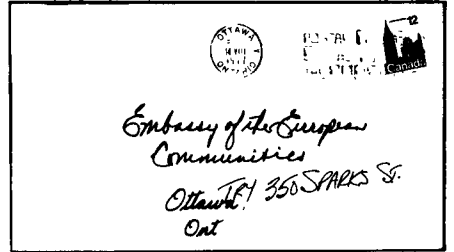 OTTAWA
ONT
12
Canada
Embassy of the European
Communities
Ottawa TRY 350 SPARKS ST.
Ont